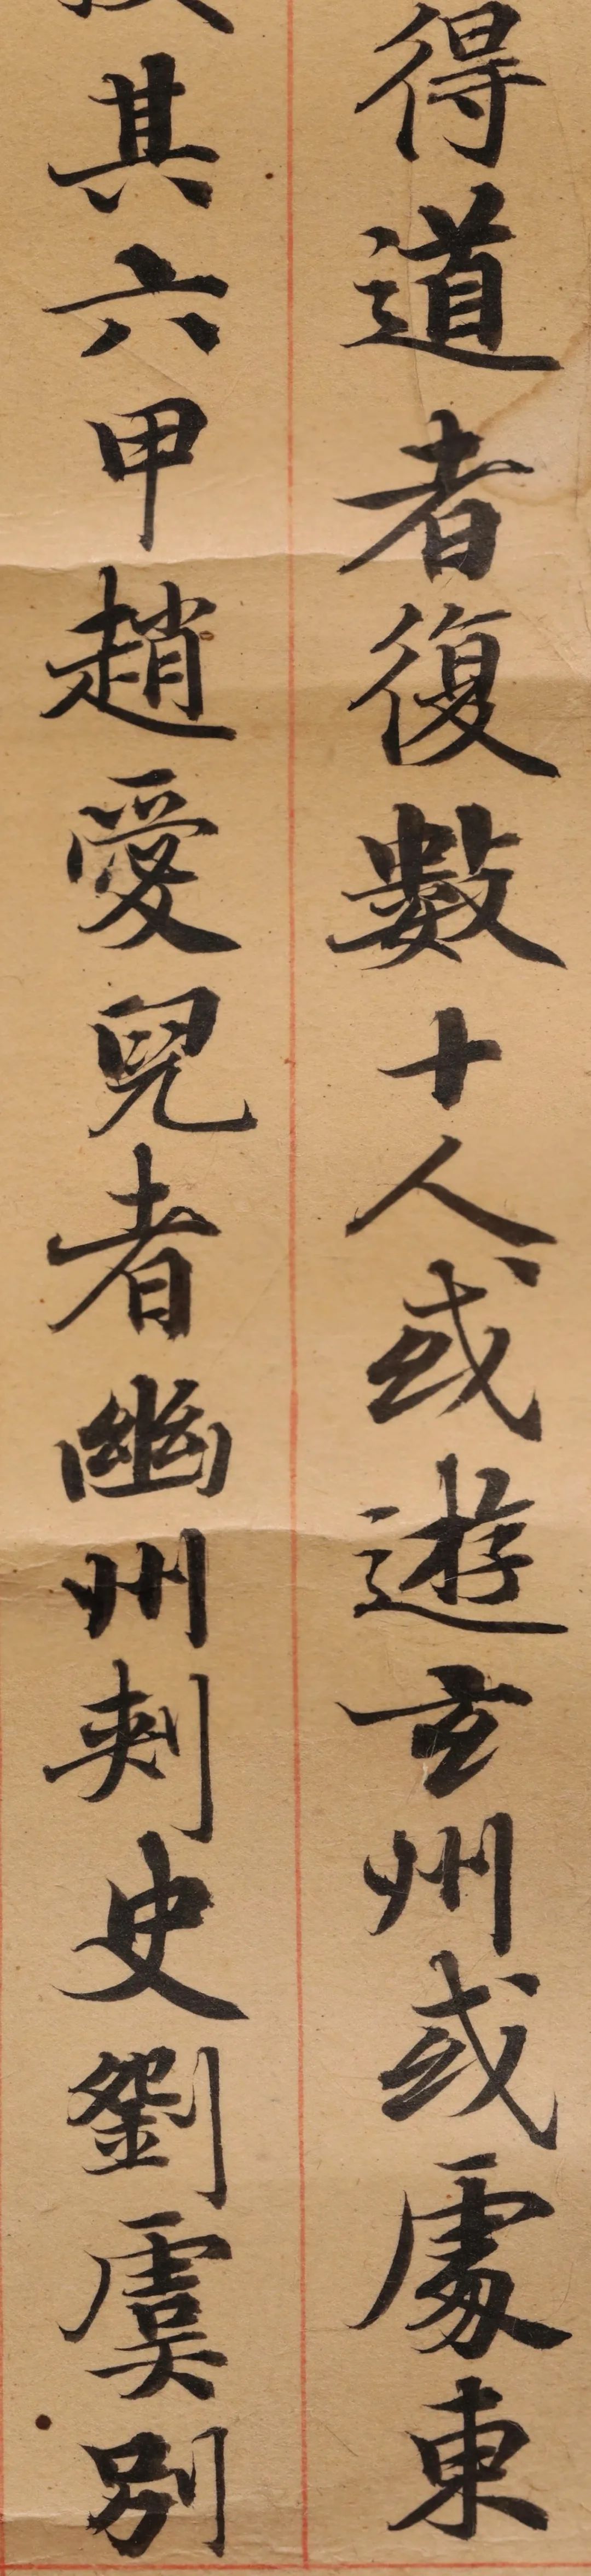 得道者復數十人或遊玄州或處東
其六甲趙愛兒者幽州刺史劉虞別